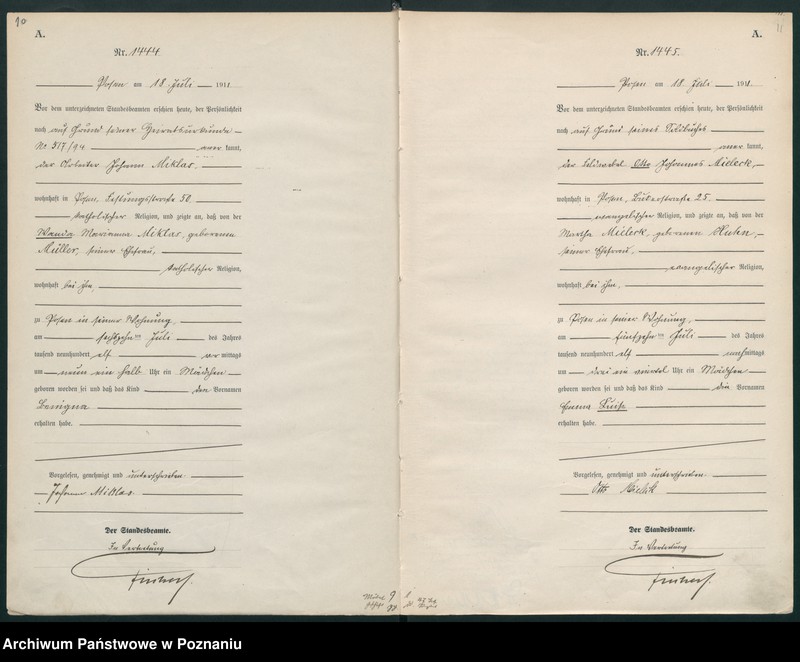 10
A.
Nr. 1444.
Posen am 18. Juli 1911
Vor dem unterzeichneten Standesbeamten erschien heute, der Persönlichkeit
nach auf Grund seiner Heiratsurkunde
No 517/94 aner kannt,
der Arbeiter Johann Miklas,
wohnhaft in Posen,
katholischer Religion, und zeigte an, daß von der
Wanda Marianna Miklas, geborenen
Müller, seiner Ehefrau,
katholischer Religion,
wohnhaft bei ihm,
zu Posen in seiner Wohnung,
am sechszehnten Juli des Jahres
tausend neunhundert elf vor mittags
um neun ein halb Uhr ein Mädchen
geboren worden sei und daß das Kind den Vornamen
Benigna
erhalten habe.
Vorgelesen, genehmigt und unterschrieben
Johann Miklas
Der Standesbeamte.
In Vertretung
11
A.
Nr. 1445.
Posen am 18. Juli 1911.
Vor dem unterzeichneten Standesbeamten erschien heute, der Persönlichkeit
nach auf Grund seines Soldbuches
aner kannt,
der Feldwebel Otto Johannes Mielerk,
wohnhaft in Posen, 25.
evangelischer Religion, und zeigte an, daß von der
Martha Mielerk, geborenen
seiner Ehefrau,
evangelischer Religion,
wohnhaft bei ihm,
zu Posen in seiner Wohnung,
am fünfzehnten Juli des Jahres
tausend neunhundert elf nachmittags
um drei ein viertel Uhr ein Mädchen
geboren worden sei und daß das Kind die Vornamen
Emma Luise
erhalten habe.
Vorgelesen, genehmigt und unterschrieben
Otto
Der Standesbeamte.
In Vertretung
Archiwum Państwowe w Poznaniu